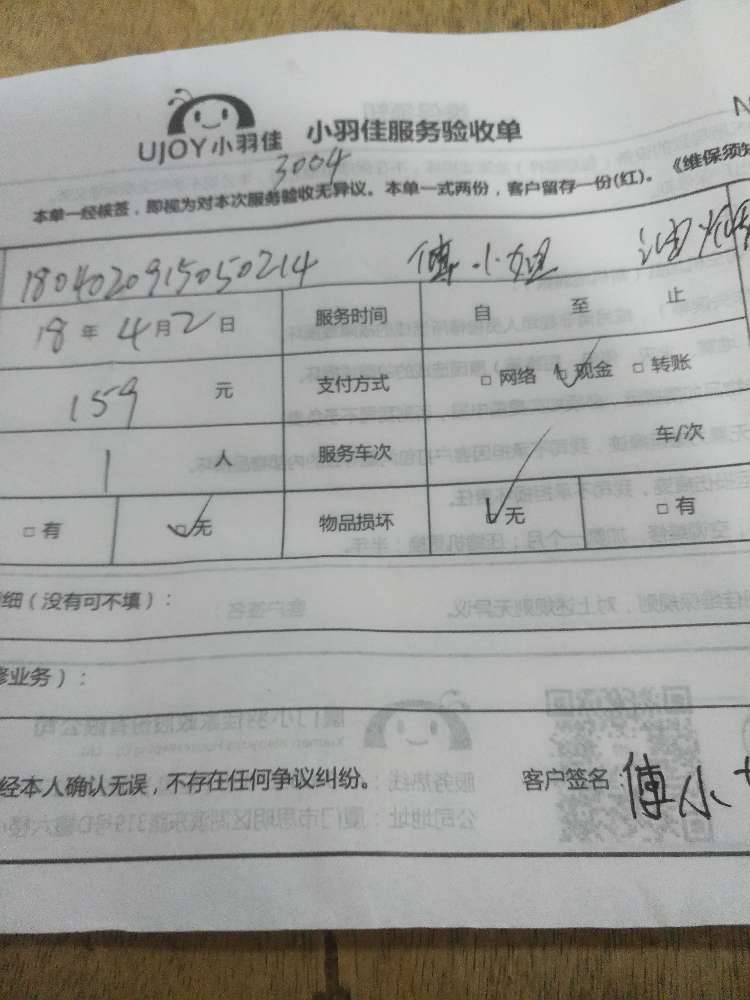 UJOY小羽佳 小羽佳服务验收单
3004
本单一经核签，即视为对本次服务验收无异议。本单一式两份，客户留存一份(红)。《维保须知
1804020915050214 傅小姐 油烟
18年4月2日 服务时间 自 至 止
159 元 支付方式 □网络 ☑现金 □转账
1 人 服务车次 车/次
□有 ☑无 物品损坏 ☑无 □有
细（没有可不填）：
修业务）：
经本人确认无误，不存在任何争议纠纷。 客户签名：傅小